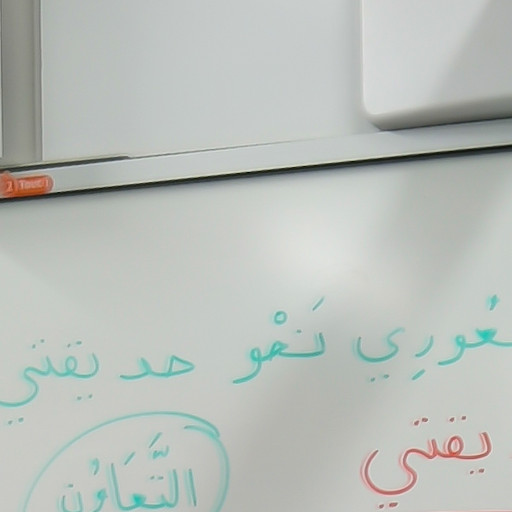 شُعُورِي نَحْو حد يقتي
يقتي
التَّعَاوُن